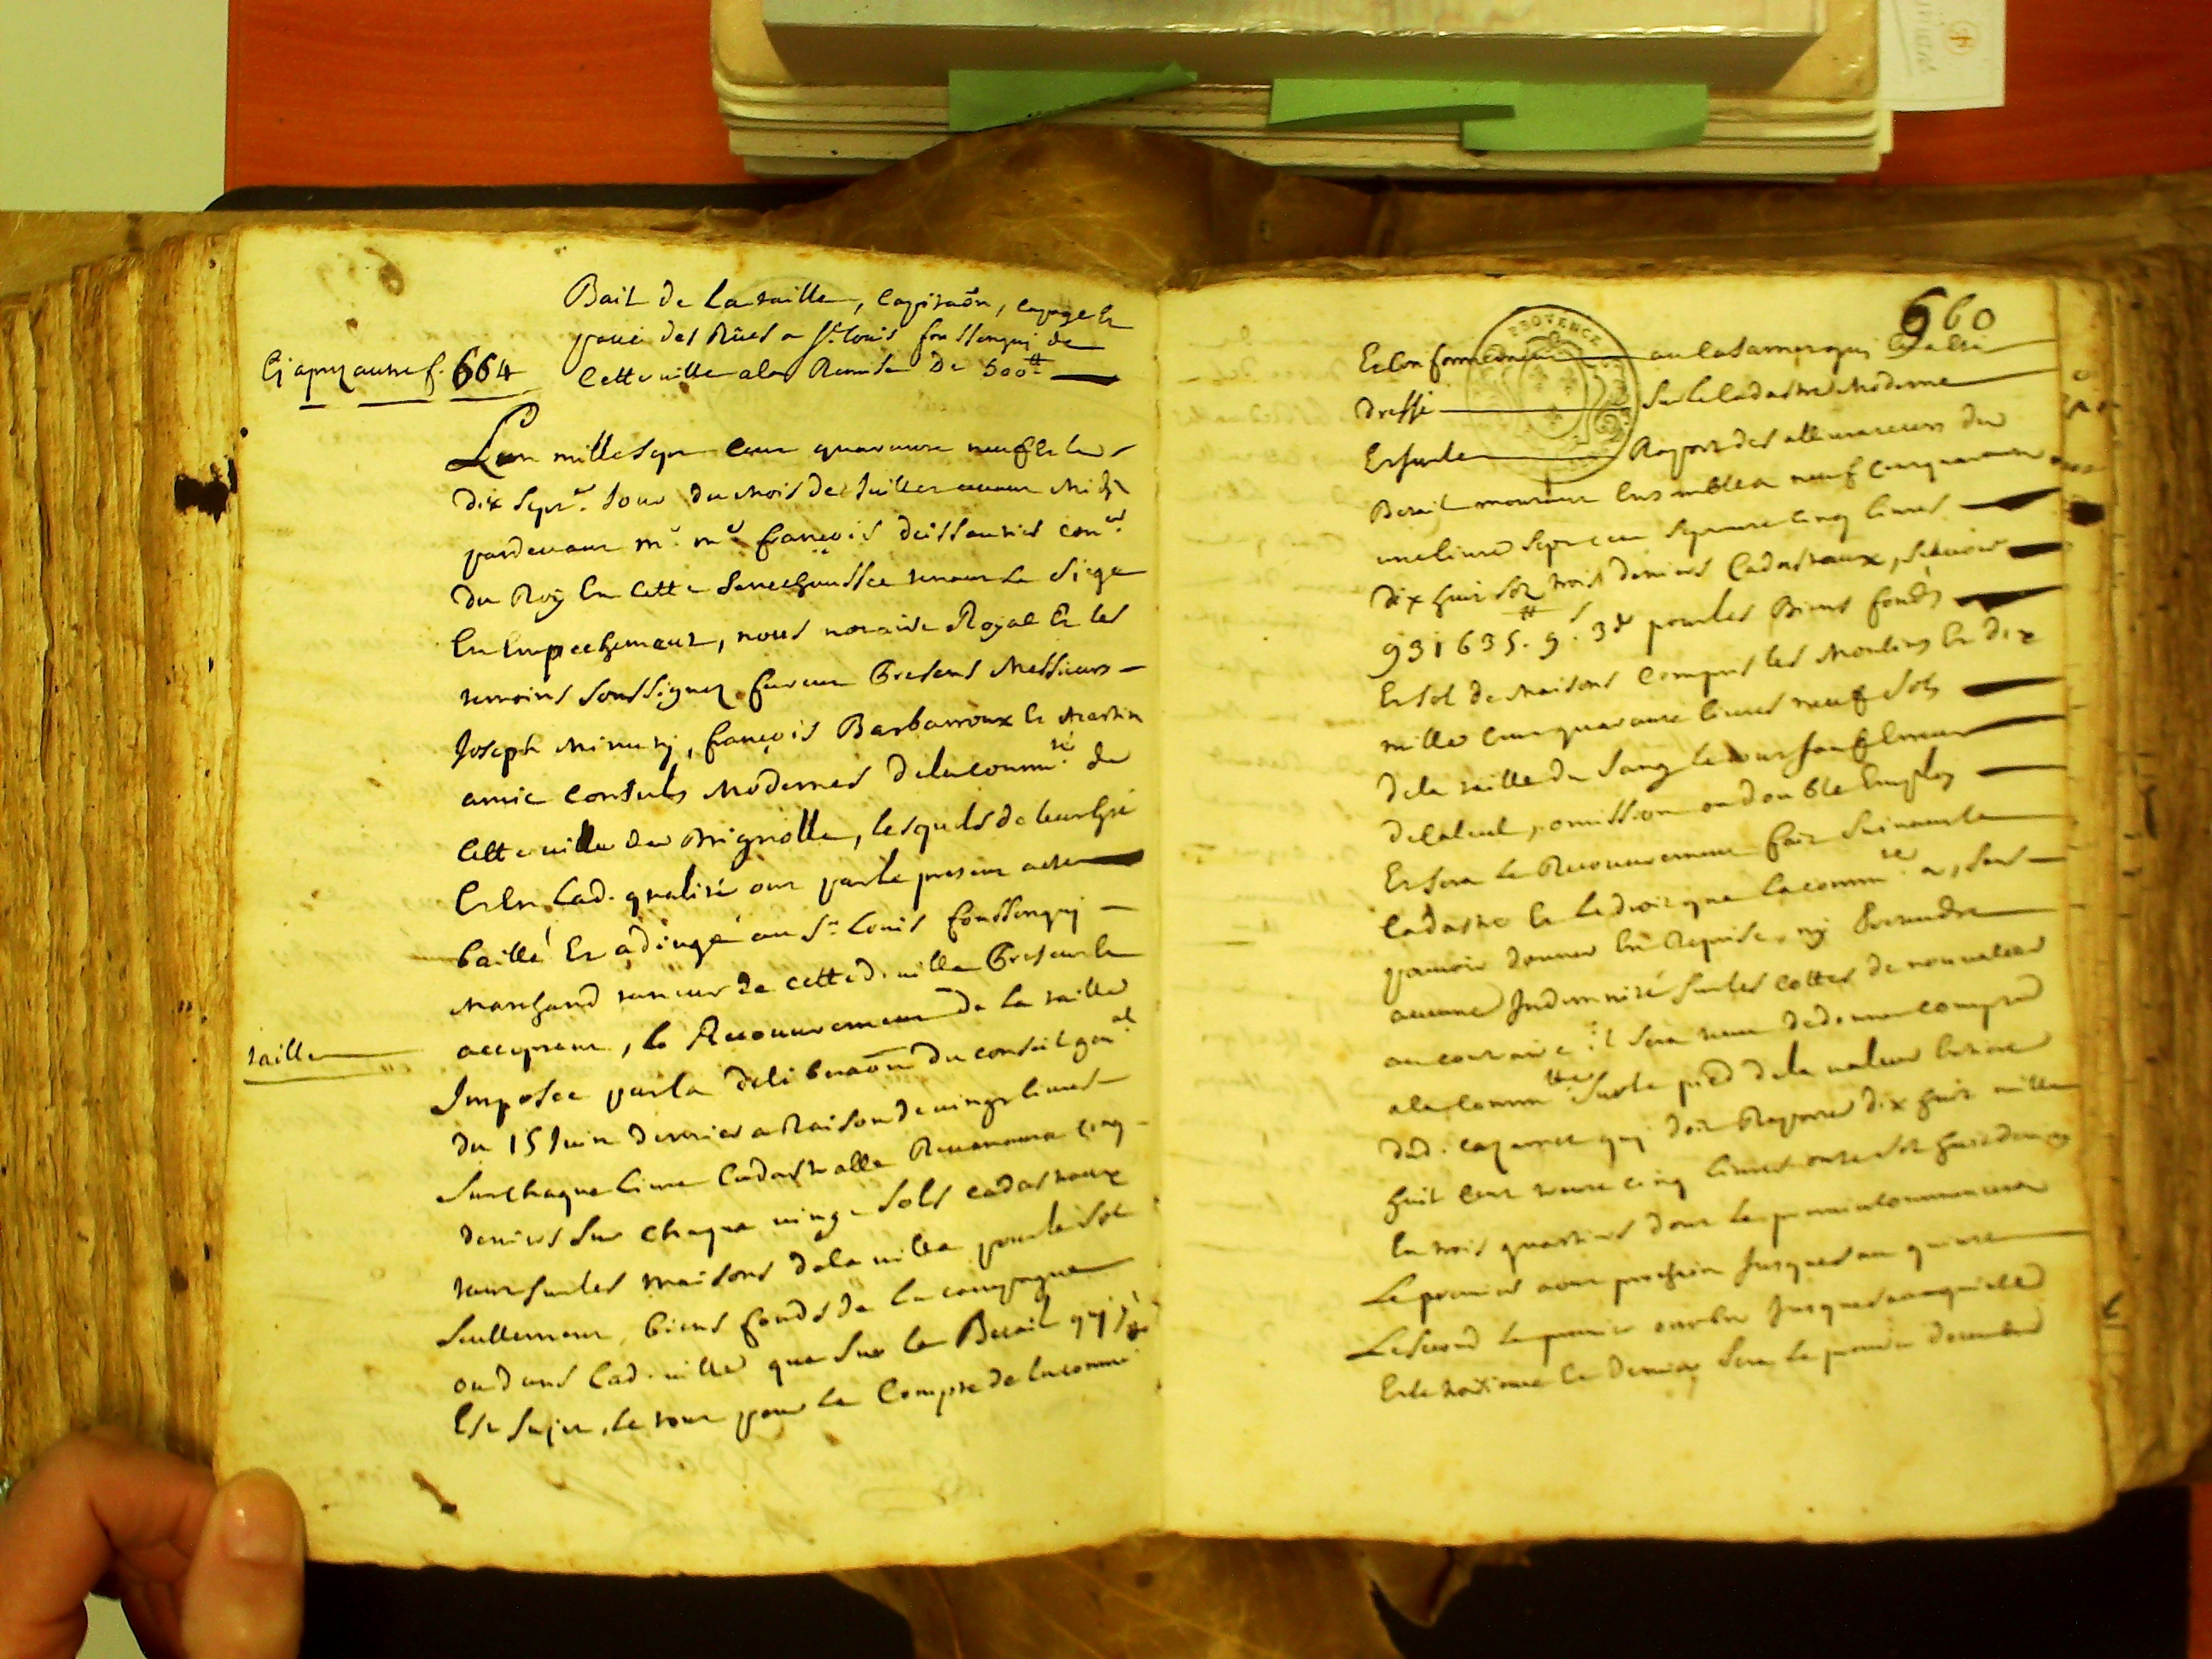 Bail de la taille, capitaõn, capage Et
pavé des Rües a Sr. Louis foussenquj de
Cette ville a la Remise De 500tt
Cj apres autre f. 664
L'an mille sept cent quarante neuf Et le
dix septe. Jour du Mois de Juillet avant Midy
pardevant Mr. me françois deissautier conr.
du Roy En cette Senechaussée tenant Le Siege
En Empechement, nous notaire Royal Et les
temoins soussignez furent Presens Messieurs
Joseph Minuty, françois Barbarroux Et Martin
amic Consuls Modernes de la commté. de
Cette ville de Brignolle, lesquels de leur gré
Et En Lad. qualité ont par le present acte
baillé Et adjugé au Sr. Louis foussenquj
Marchand taneur de cetted. ville Present Et
acceptant, le Recouvrement de la taille
taille
Imposée par la deliberaõn du conseil gnãl
du 15 Juin dernier a Raison de vingt livres
sur chaque livre Cadastralle Revenant a cinq
deniers sur chaque vingt sols cadastraux
tant sur les maisons de la ville pour le sol
seullement, biens fonds de la campagne
ou dans Lad. ville que sur le Betail quj y
Est sujet, le tout pour Le Compte de la commté.
660
PROVENCE
Et Conformement au Casarnet quj En a Esté
Dressé sur le Cadastre Moderne
Et sur le Raport des allivrateurs du
Betail montant Ensemble a neuf cent quarante
une livre sept cent septante cinq livres
dix huit sols trois deniers Cadastraux, sçavoir
931635.tt 9.s 3d pour les Biens fonds
Et sol de Maisons compris les Moulins Et dix
mille cent quarante livres neuf sols
de la taille du sang le tout sauf Erreur
de calcul, omission ou double Employ
Et sera Le Recouvrement fait suivant le
Cadastre Et Le droit que La commté. a, sans
pouvoir donner En Reprise, ny Pretendre
aucune Indemnité sur les cottes de non valeur
au contraire il sera tenu de donner compte
a la Commté. sur le pied de la valeur Entiere
dud. cazernet quj doit Raporter dix huit mille
huit cent trente cinq livres onze sols huit deniers
En trois quartiers dont Le premier commencera
Le premier aout prochain Jusques au quinze
Le second Le premier octobre Jusques au quinze
Et le troisieme Et Dernier sera Le premier decembre